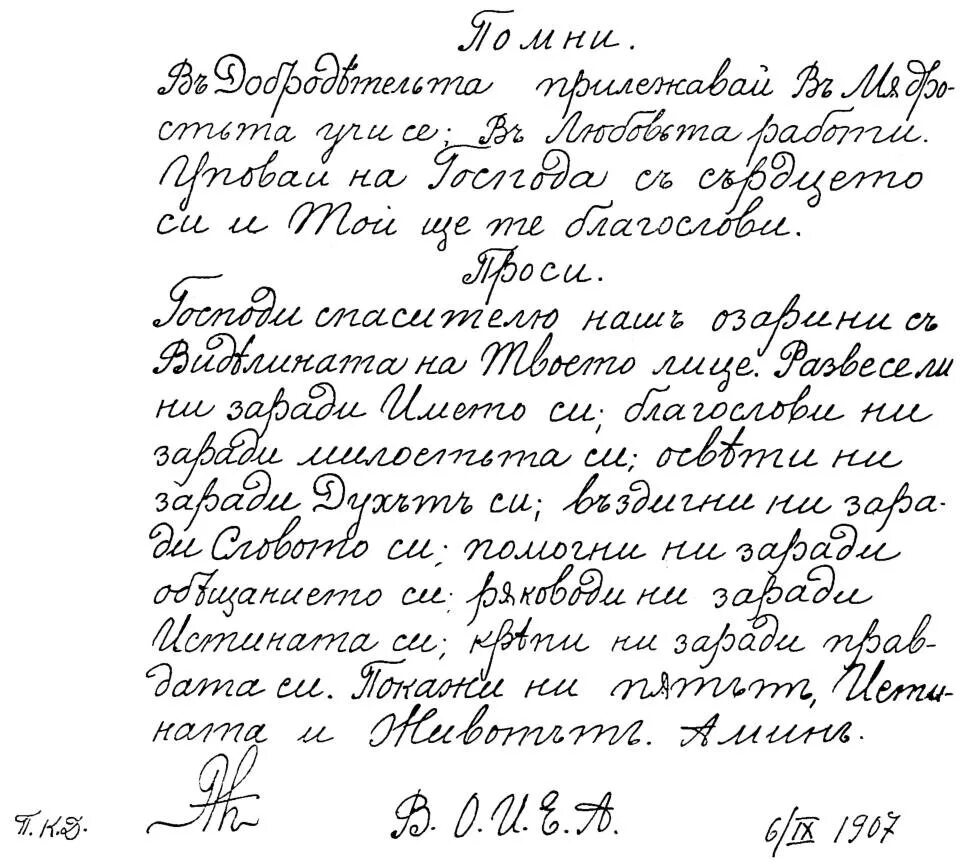 Помни.
Въ Добродѣтельта прилежавай Въ Мѫдро-
стьта учи се; Въ Любовьта работи.
Уповай на Господа съ сърдцето
си и Той ще те благослови.
Проси.
Господи спасителю нашъ озари ни съ
Видѣлината на Твоето лице. Развесели
ни заради Името си; благослови ни
заради милостьта си; освѣти ни
заради Духътъ си; въздигни ни зара-
ди Словото си; помогни ни заради
обѣщанието си; рѫководи ни заради
Истината си; крѣпи ни заради прав-
дата си. Покажи ни пѫтьтъ, Исти-
ната и Животътъ. Аминь.
П.К.Д. В. О. И. Е. А. 6/IX 1907